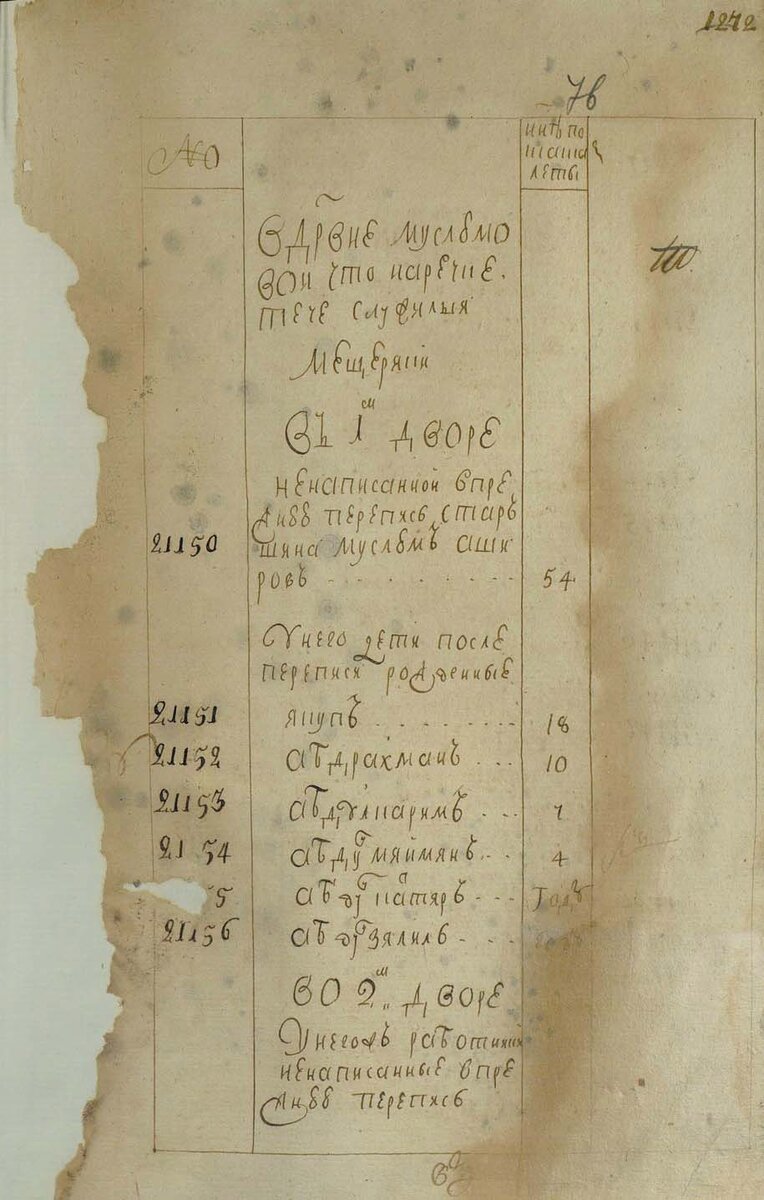 1272
76
№
инѣ по
писана
леты
В дрвне муслюмо
вои что наречие.
тече служилыя
мещеряки
Въ 1м дворе
ненаписанной впре
жнюю перепись старъ
21150 шина муслюмъ аши
ровъ 54
У него дети после
переписи рожденные
21151 якупъ 18
21152 абдрахманъ 10
21153 абдулкаримъ 7
21 54 абдулмяймянъ 4
5 абдулсатяръ годъ
21156 абдулзялиль
Во 2м дворе
У негожъ работники
ненаписанные впре
жнюю перепись